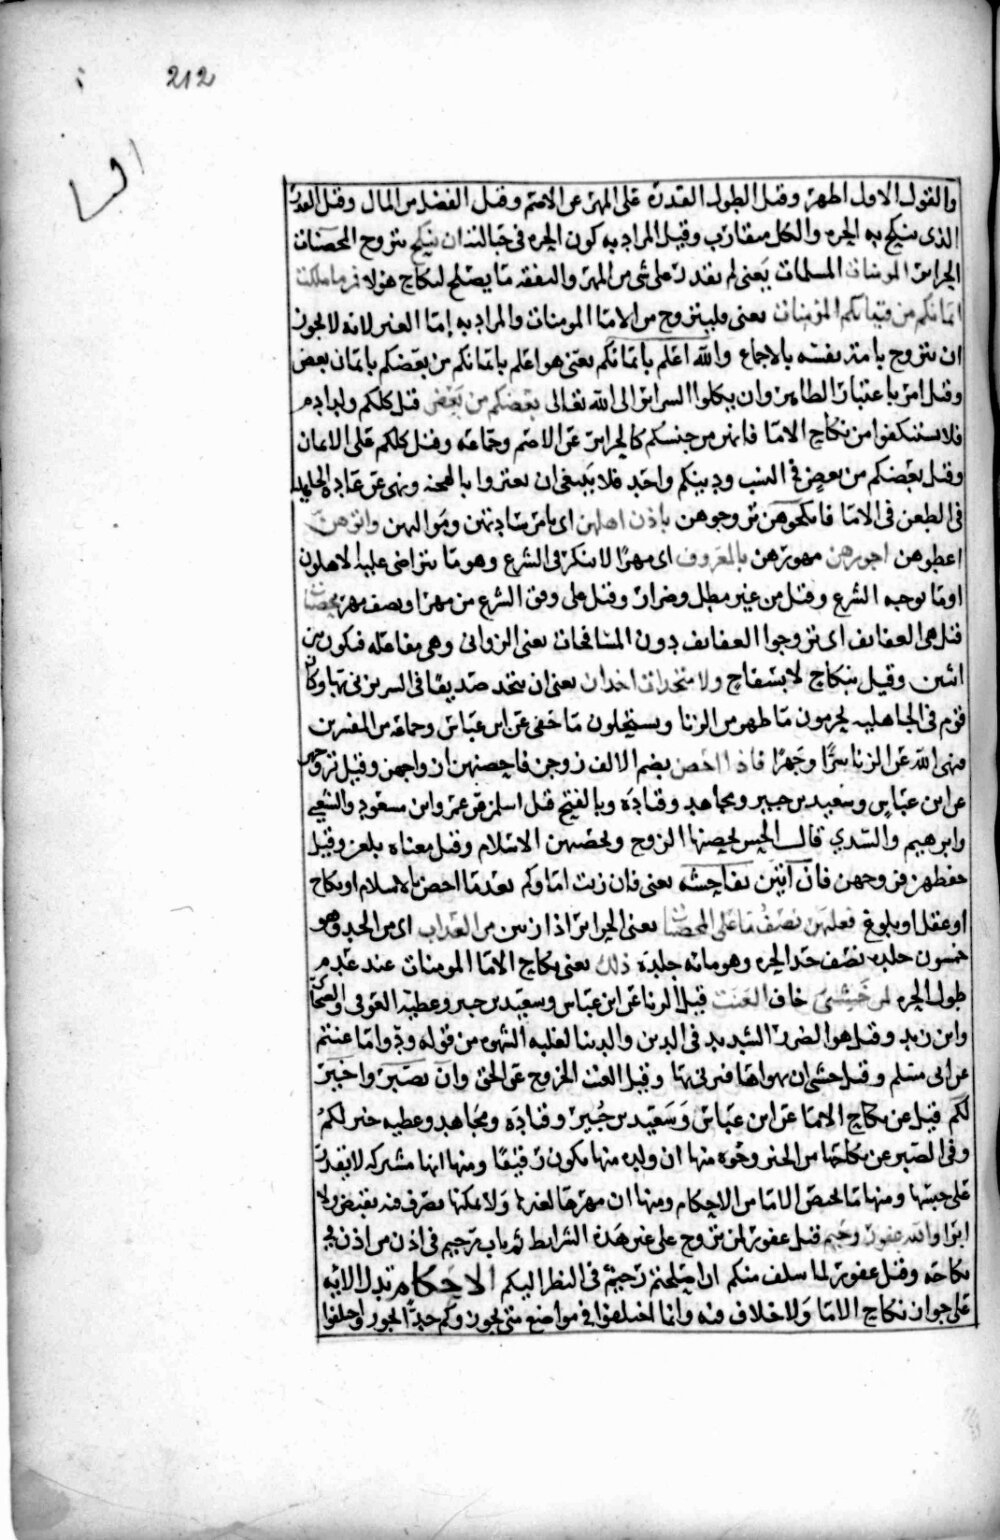 212
النسا
والقول الاول اظهر وقيل الطول القدرة على المهر عن الاصم وقيل الفضل من المال وقيل القدر
الذي ينكح به الحره والكل متقارب وقيل المراد به كون الحره في حبالته ان ينكح يتزوج المحصنات
الحراير المومنات المسلمات يعني لم يقدر على شي من المهر والنفقه ما يصلح لنكاح هولا فمن ما ملكت
ايمانكم من فتياتكم المؤمنات يعني فليتزوج من الاما المومنات والمراد به اما الغير لانه لا يجوز
ان يتزوج بامة نفسه بالاجماع والله اعلم بايمانكم يعني هو اعلم بايمانكم من بعضكم بايمان بعض
وقيل امر باعتبار الظاهر وان يكلوا السراير الى الله تعالى بعضكم من بعض قيل كلكم ولد ادم
فلا تستنكفوا من نكاح الاما فانهن من جنسكم كالحراير عن الاصم وجماعه وقيل كلكم على الايمان
وقيل بعضكم من بعض في النسب ودينكم واحد فلا ينبغي ان يعيروا بالهجنه ونهى عن عادة الجاهليه
في الطعن في الاما فانكحوهن تزوجوهن باذن اهلهن اي بامر ساداتهن ومواليهن واتوهن
اعطوهن اجورهن مهورهن بالمعروف اي مهرا لا ينكر في الشرع وهو ما يتراضى عليه الاهلون
او ما يوجبه الشرع وقيل من غير مطل وضرار وقيل على وفق الشرع من مهر او نصف مهر محصنات
قيل هي العفايف اي تزوجوا العفايف دون المسافحات يعني الزواني وهي مفاعله فيكون من
اثنين وقيل بنكاح لا بسفاح ولا متخذات اخدان يعني ان يتخذ صديقا في السر يزني بها وكان
قوم في الجاهليه يحرمون ما ظهر من الزنا ويستحلون ما خفي عن ابن عباس وجماعه من المفسرين
فنهى الله عن الزنا سرا وجهرا فاذا احصن بضم الالف زوجن فاحصنهن ازواجهن وقيل تزوجن
عن ابن عباس وسعيد بن جبير ومجاهد وقتادة وبالفتح قيل اسلمن عن عمر وابن مسعود والشعبي
وابرهيم والسدي قال الحسن يحصنها الزوج ويحصنهن الاسلام وقيل معناه بلغن وقيل
حفظهن فروجهن فان آتين بفاحشه يعني فان زنت اماوكم بعدما احصن بالاسلام او نكاح
او عقل او بلوغ فعليهن نصف ما على المحصنات يعني الحراير اذا زنين من العذاب اي من الحد وهو
خمسون جلده نصف حد الحره وهو مائه جلدة ذلك يعني نكاح الاما المومنات عند عدم
طول الحره لمن خشي خاف العنت قيل الزنا عن ابن عباس وسعيد بن جبير وعطية العوفي والضحاك
وابن زيد وقيل هو الضرر الشديد في الدين والدنيا لغلبه الشهوه من قوله ودوا ما عنتم
عن ابي مسلم وقيل خشي ان يهواها فيزني بها وقيل العنت الخروج عن الحق وان تصبروا خير
لكم قيل عن نكاح الاما عن ابن عباس وسعيد بن جبير وقتادة ومجاهد وعطيه خير لكم
وفي الصبر عن نكاحها من الخير وجوه منها ان ولده منها يكون رقيقا ومنها انها مشتركه لا يقدر
على حبسها ومنها ما يختص الاما من الاحكام ومنها ان مهرها لغيرها ولا يمكنها تصرف فيه بقبض ولا
ابرا والله غفور رحيم قيل غفور لمن تزوج على غير هذه الشرايط ثم تاب رحيم في اذن من اذن في
نكاحه وقيل غفور لما سلف منكم اذا صلحتم رحيم في النظر اليكم الاحكام تدل الايه
على جواز نكاح الاما ولا خلاف فيه وانما اختلفوا في مواضع متى يجوز وكم حد الجور واختلفوا